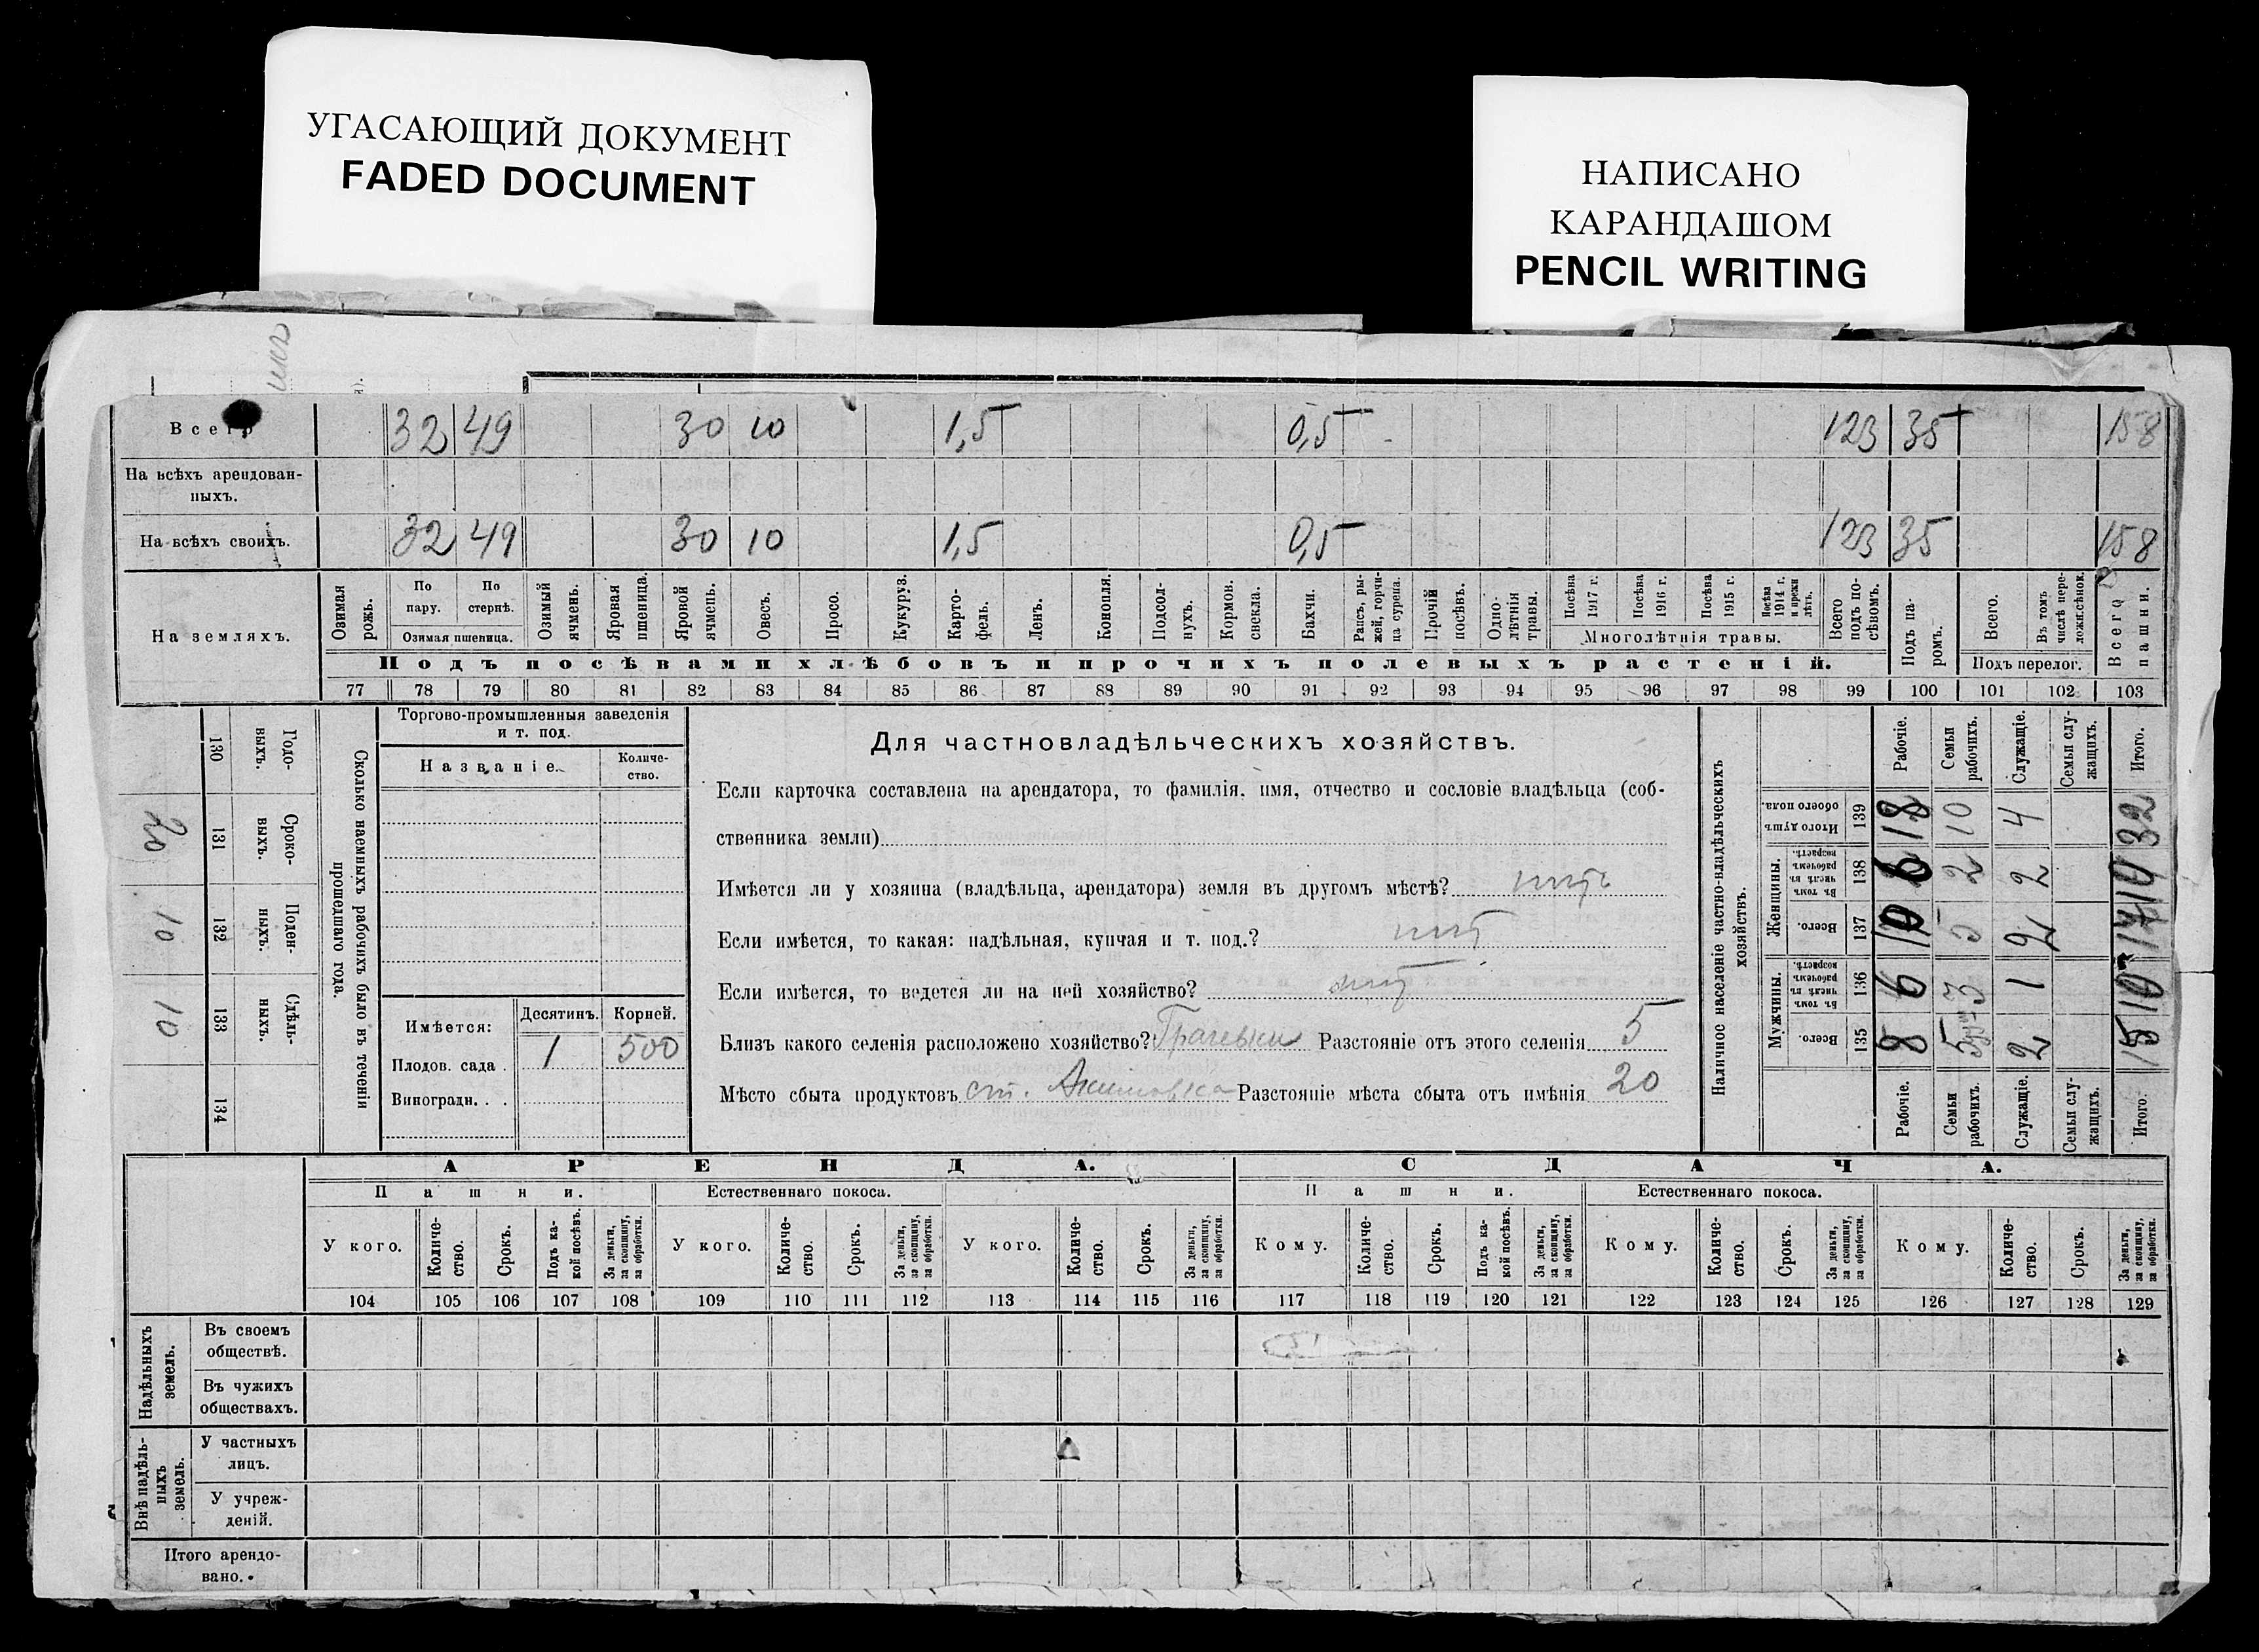 УГАСАЮЩИЙ ДОКУМЕНТ
FADED DOCUMENT
НАПИСАНО
КАРАНДАШОМ
PENCIL WRITING
Всего 32 49 30 10 1,5 0,5 123 35 158
На всѣхъ арендован-
ныхъ.
На всѣхъ своихъ. 32 49 30 10 1,5 0,5 123 35 158
На земляхъ.
Озимая рожь.
По пару.
По стернѣ.
Озимая пшеница.
Озимый ячмень.
Яровая пшеница.
Яровой ячмень.
Овесъ.
Просо.
Кукуруз.
Карто-
фель.
Ленъ.
Конопля.
Подсол-
нухъ.
Кормов.
свекла.
Бахчи.
Рапсъ, ры-
жей, горчи-
ца сурепа.
Прочій
посѣвъ.
Одно-
лѣтнія
травы.
Посѣва
1917 г.
Посѣва
1916 г.
Посѣва
1915 г.
Посѣва
1914 г.
и прежн
лѣтъ.
Многолѣтнія травы.
Всего
подъ по-
сѣвомъ.
Подъ па-
ромъ.
Всего.
Въ томъ
числѣ пере-
ложн.сѣнок.
Подъ перелог.
Всего
пашни.
Подъ посѣвами хлѣбовъ и прочихъ полевыхъ растеній.
77 78 79 80 81 82 83 84 85 86 87 88 89 90 91 92 93 94 95 96 97 98 99 100 101 102 103
130 Годо-
выхъ.
131 Сроко-
выхъ. 20
132 Поден-
ныхъ. 10
133 Сдѣль-
ныхъ. 10
134
Сколько наемныхъ рабочихъ было въ теченіи
прошедшаго года.
Торгово-промышленныя заведенія
и т. под.
Названіе.
Количе-
ство.
Имѣется: Десятинъ. Корней.
Плодов. сада . 1 500
Виноградн. . .
Для частновладѣльческихъ хозяйствъ.
Если карточка составлена на арендатора, то фамилія, имя, отчество и сословіе владѣльца (соб-
ственника земли)
Имѣется ли у хозяина (владѣльца, арендатора) земля въ другомъ мѣстѣ? нѣтъ
Если имѣется, то какая: надѣльная, купчая и т. под.? нѣт
Если имѣется, то ведется ли на ней хозяйство? нѣт
Близъ какого селенія расположено хозяйство? Грачевки Разстояніе отъ этого селенія 5
Мѣсто сбыта продуктовъ ст. Акимовка Разстояніе мѣста сбыта отъ имѣнія 20
Наличное населеніе частно-владѣльческихъ
хозяйствъ.
Рабочіе.
Семьи
рабочихъ.
Служащіе.
Семьи слу-
жащихъ.
Итого.
Итого душ
обоего пола. 139 18 10 4 32
Женщины.
Въ томъ
числѣ въ
рабочемъ
возрастѣ. 138 6 2 2
Всего. 137 10 5 2 17
Мужчины.
Въ томъ
числѣ въ
рабочемъ
возрастѣ. 136 6 3 1 10
Всего. 135 8 5 2 15
Рабочіе.
Семьи
рабочихъ.
Служащіе.
Семьи слу-
жащихъ.
Итого.
АРЕНДА. СДАЧА.
Пашни. Естественнаго покоса. Пашни. Естественнаго покоса.
У кого.
Количе-
ство.
Срокъ.
Подъ ка-
кой посѣвъ.
За деньги,
за скопщину,
за обработки.
У кого.
Количе-
ство.
Срокъ.
За деньги,
за скопщину,
за обработки.
У кого.
Количе-
ство.
Срокъ.
За деньги,
за скопщину,
за обработки.
Кому.
Количе-
ство.
Срокъ.
Подъ ка-
кой посѣвъ.
За деньги,
за скопщину,
за обработки.
Кому.
Количе-
ство.
Срокъ.
За деньги,
за скопщину,
за обработки.
Кому.
Количе-
ство.
Срокъ.
За деньги,
за скопщину,
за обработки.
104 105 106 107 108 109 110 111 112 113 114 115 116 117 118 119 120 121 122 123 124 125 126 127 128 129
Надѣльныхъ
земель.
Въ своемъ
обществѣ.
Въ чужихъ
обществахъ.
Внѣ надѣль-
ныхъ
земель.
У частныхъ
лицъ.
У учреж-
деній.
Итого арендо-
вано.